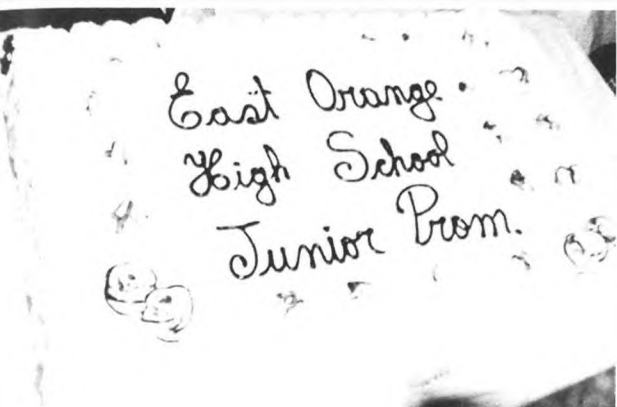 East Orange
High School
Junior Prom.